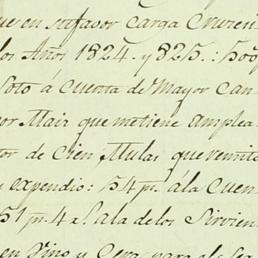 que en su favor Carga Cruzen
los Años 1824. y 825.: 500
voto á Cuenta de Mayor Can
or Mair que me tiene amplea
tor de Cien Mulas que remite
y expendio: 54 p.s á la Cuen
51 p.s 4 r.s á la de los Sirvien
en Vino y Cera para el